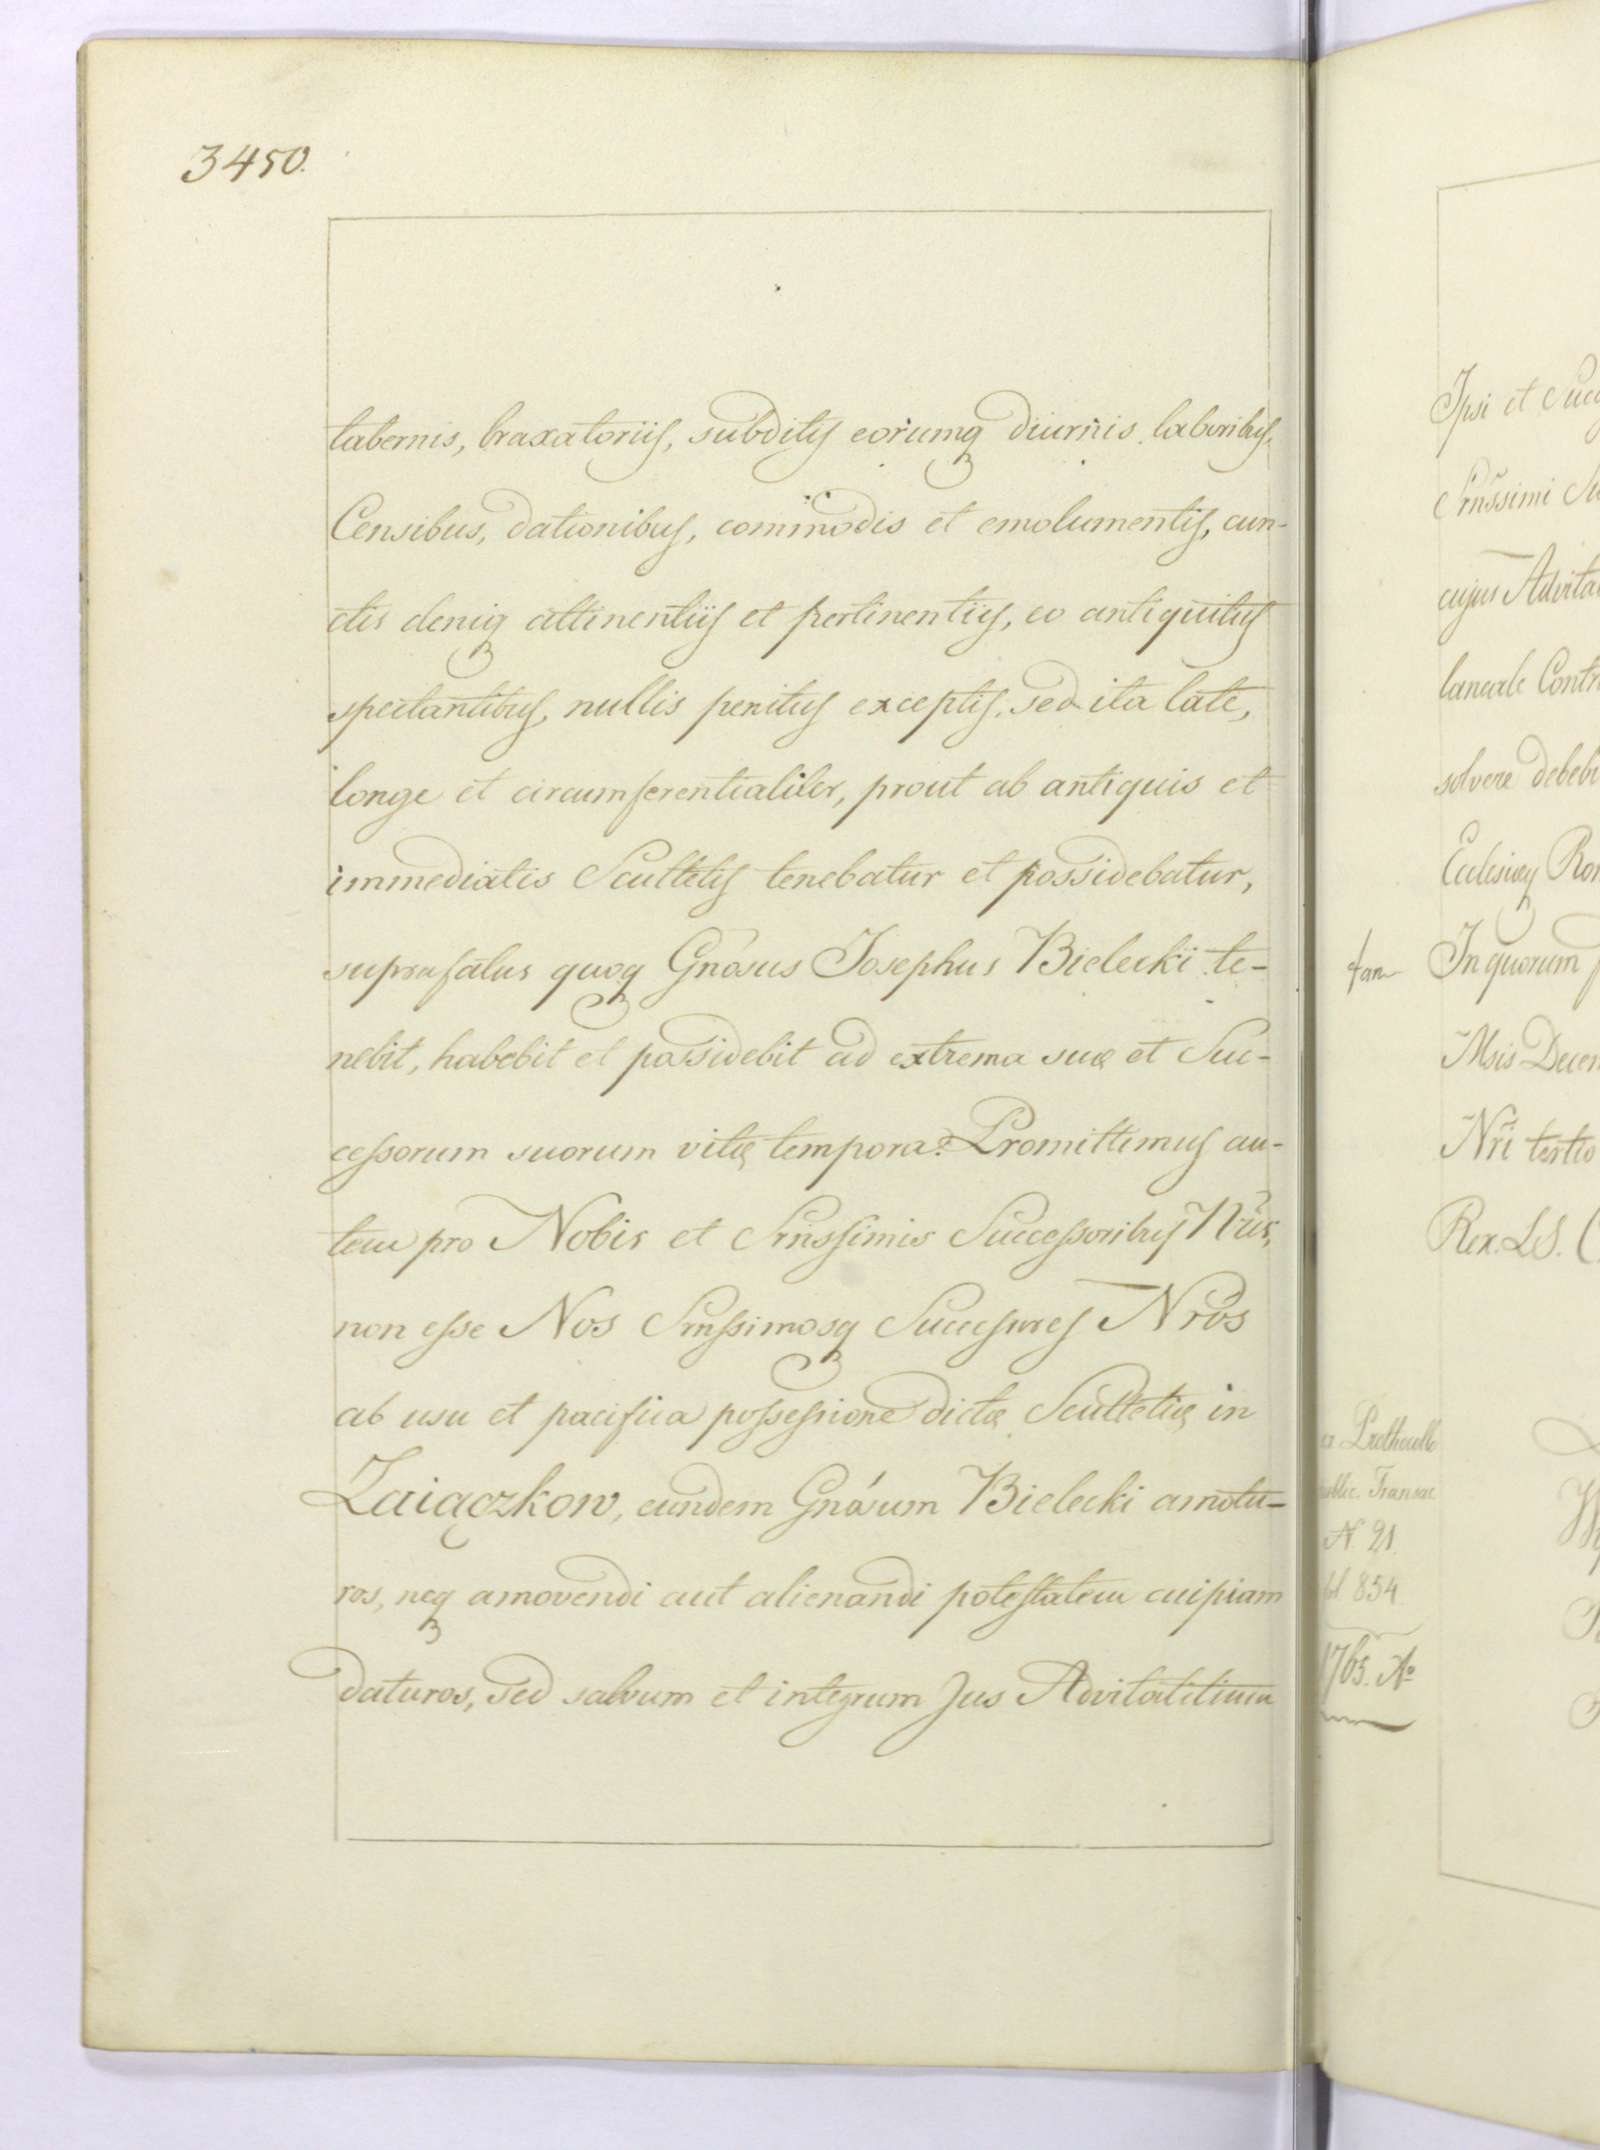 3450.
tabernis, braxatoriis, subditis eorumq diurnis laboribus,
Censibus, dationibus, commodis et emolumentis, cun-
ctis deniq attinentiis et pertinentiis, eo antiquitus
spectantibus, nullis penitus exceptis, sed ita late,
longe et circumferentialiter, prout ab antiquis et
immediatis Scultetis tenebatur et possidebatur,
suprafatus quoq Gnosus Josephus Bielecki te-
nebit, habebit et possidebit ad extrema suæ et Suc-
cessorum suorum vitæ tempora. Promittimus au-
tem pro Nobis et Srnssimis Successoribus Nris,
non esse Nos Srnssimosq Successores Nros
ab usu et pacifica possessione dictæ Scultetiæ in
Zaiączkow, eundem Gnosum Bielecki amotu-
ros, neq amovendi aut alienandi potestatem cuipiam
daturos, sed salvum et integrum Jus Advitalitium
Ipsi et Succ
Srnssimi Su
cujus Advita
laneale Contr
solvere debeb
Ecclesiæq Rom
fan In quorum f
Msis Decem
Nri tertio
Rex. LS. (
ex Prothocollo
public. Transac
N. 21.
fol 854
1765. Ao